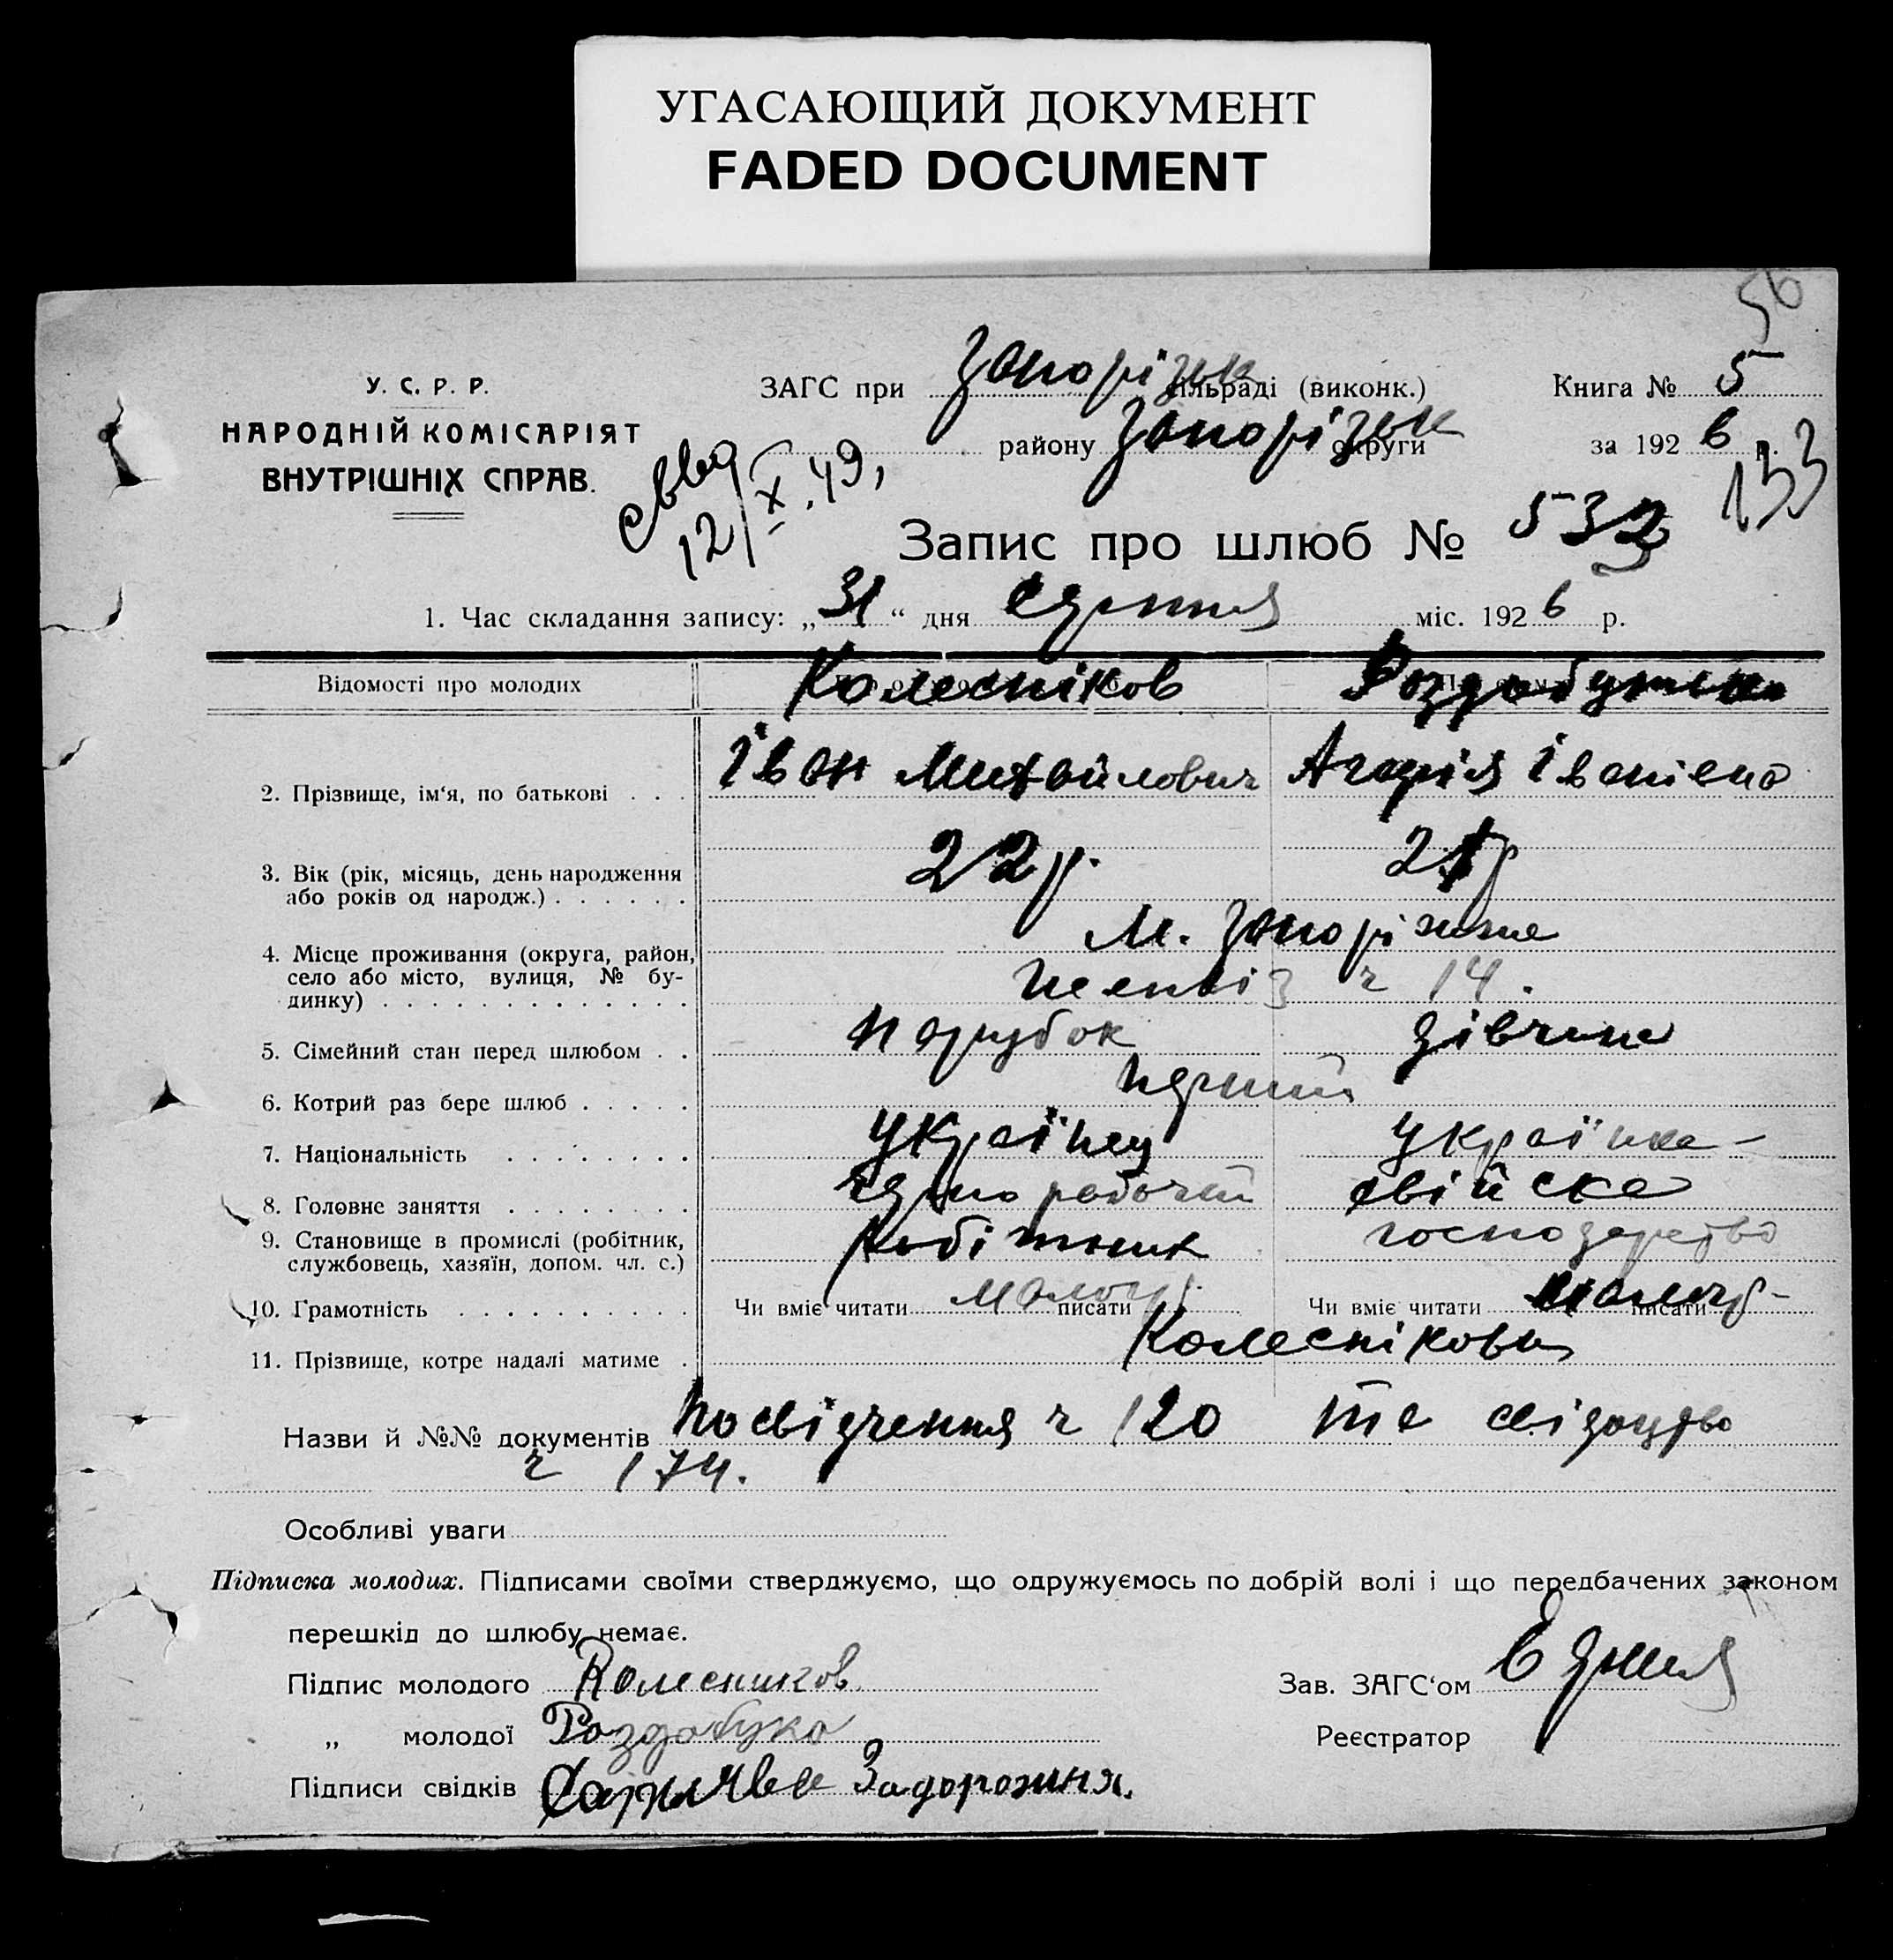 УГАСАЮЩИЙ ДОКУМЕНТ
FADED DOCUMENT
56
У. С. Р. Р.
НАРОДНІЙ КОМІСАРІЯТ
ВНУТРІШНІХ СПРАВ.
ЗАГС при Запорізьк сільраді (виконк.)
Книга № 5
району Запорізьк округи
за 1926 р.
133
12/X.49,
Запис про шлюб № 532
1. Час складання запису: „31“ дня серпня міс. 1926 р.
Відомості про молодих Колесніков
2. Прізвище, ім‘я, по батькові . . . Іван Михайлович Іванівна
3. Вік (рік, місяць, день народження
або років од народж.) . . . . . . 22 р. 21 р
4. Місце проживання (округа, район,
село або місто, вулиця, № бу-
динку) . . . . . . . . . . . . . М. Запоріжжя
ч 14.
5. Сімейний стан перед шлюбом . . парубок дівчина
6. Котрий раз бере шлюб . . . . . перший
7. Національність . . . . . . . . українец українка
8. Головне заняття . . . . . . . . свійске
9. Становище в промислі (робітник,
службовець, хазяїн, допом. чл. с.) Робітник господарство
10. Грамотність . . . . . . . . . . Чи вміє читати малогр. писати Чи вміє читати малогр- писати
11. Прізвище, котре надалі матиме . Колеснікови
Назви й №№ документів посвідчення ч 120 та свідоцтво
ч 174.
Особливі уваги
Підписка молодих. Підписами своїми стверджуємо, що одружуємось по добрій волі і що передбачених законом
перешкід до шлюбу немає.
Підпис молодого Колесников
Зав. ЗАГС‘ом
„ молодої Роздобуко
Реєстратор
Підписи свідків Задорожня.